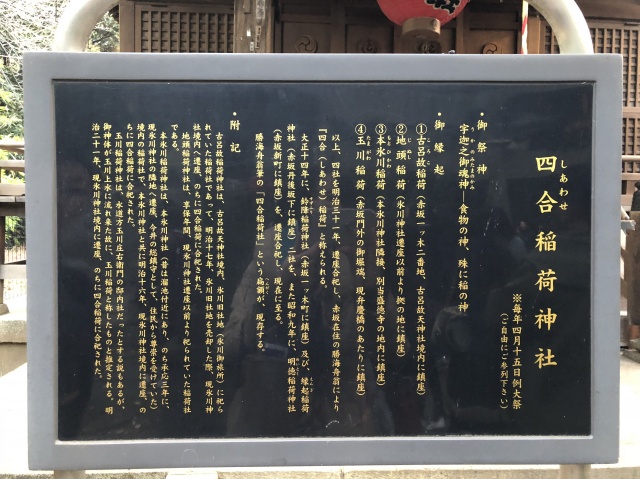 四合稲荷神社
しあわせ
※毎年四月十五日例大祭
(ご自由にご参列下さい)
・御祭神
うかのみたまのかみ
宇迦之御魂神―食物の神、殊に稲の神
・御縁起
①古呂故稲荷(赤坂一ッ木二番地、古呂故天神社境内に鎮座)
②地頭稲荷(氷川神社遷座以前より拠の地に鎮座)
③本氷川稲荷(本氷川神社隣接、別当盛徳寺の地内に鎮座)
④玉川稲荷(赤坂門外の御堀端、現弁慶橋のあたりに鎮座)
以上、四社を明治三十一年、遷座合祀し、赤坂在住の勝海舟翁により
『四合(しあわせ)稲荷』と称えられる。
大正十四年に、鈴降稲荷神社(赤坂一ッ木町に鎮座)及び、縁起稲荷
神社(赤坂丹後坂下に鎮座)二社を、また昭和九年に、明徳稲荷神社
(赤坂新町に鎮座)を、遷座合祀し、現在に至る。
勝海舟翁筆の「四合稲荷社」という扁額が、現存する。
・附記
古呂故稲荷神社は、古呂故天神社境内、氷川旧社地(氷川御旅所)に祀ら
れていた稲荷であって、明治十七年、氷川旧社地を売却した際、現氷川神
社境内へ遷座、のちに四合稲荷に合祀された。
地頭稲荷神社は、享保年間、現氷川神社遷座以前より祀られていた稲荷社
である。
本氷川稲荷神社は、本氷川神社(昔は溜池付近にあり、のち承応三年に、
現氷川神社の隣地へ遷座、今井の総鎮守として、住民から尊崇を受けていた)
境内の稲荷社で、本氷川神社と共に明治十六年、現氷川神社境内に遷座、の
ちに四合稲荷に合祀された。
玉川稲荷神社は、水道方玉川庄右衛門の邸内社だったとする説もあるが、
御神体が玉川上水に流れ来た故に、玉川稲荷と称したものと推定される。明
治二十一年、現氷川神社境内に遷座、のちに四合稲荷に合祀された。